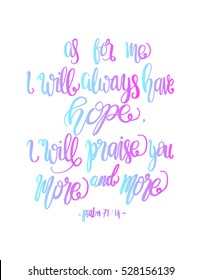 as for me
i will always have
hope,
i will praise you
more and more
- psalm 71:14 -
shutterstock.com · 528156139